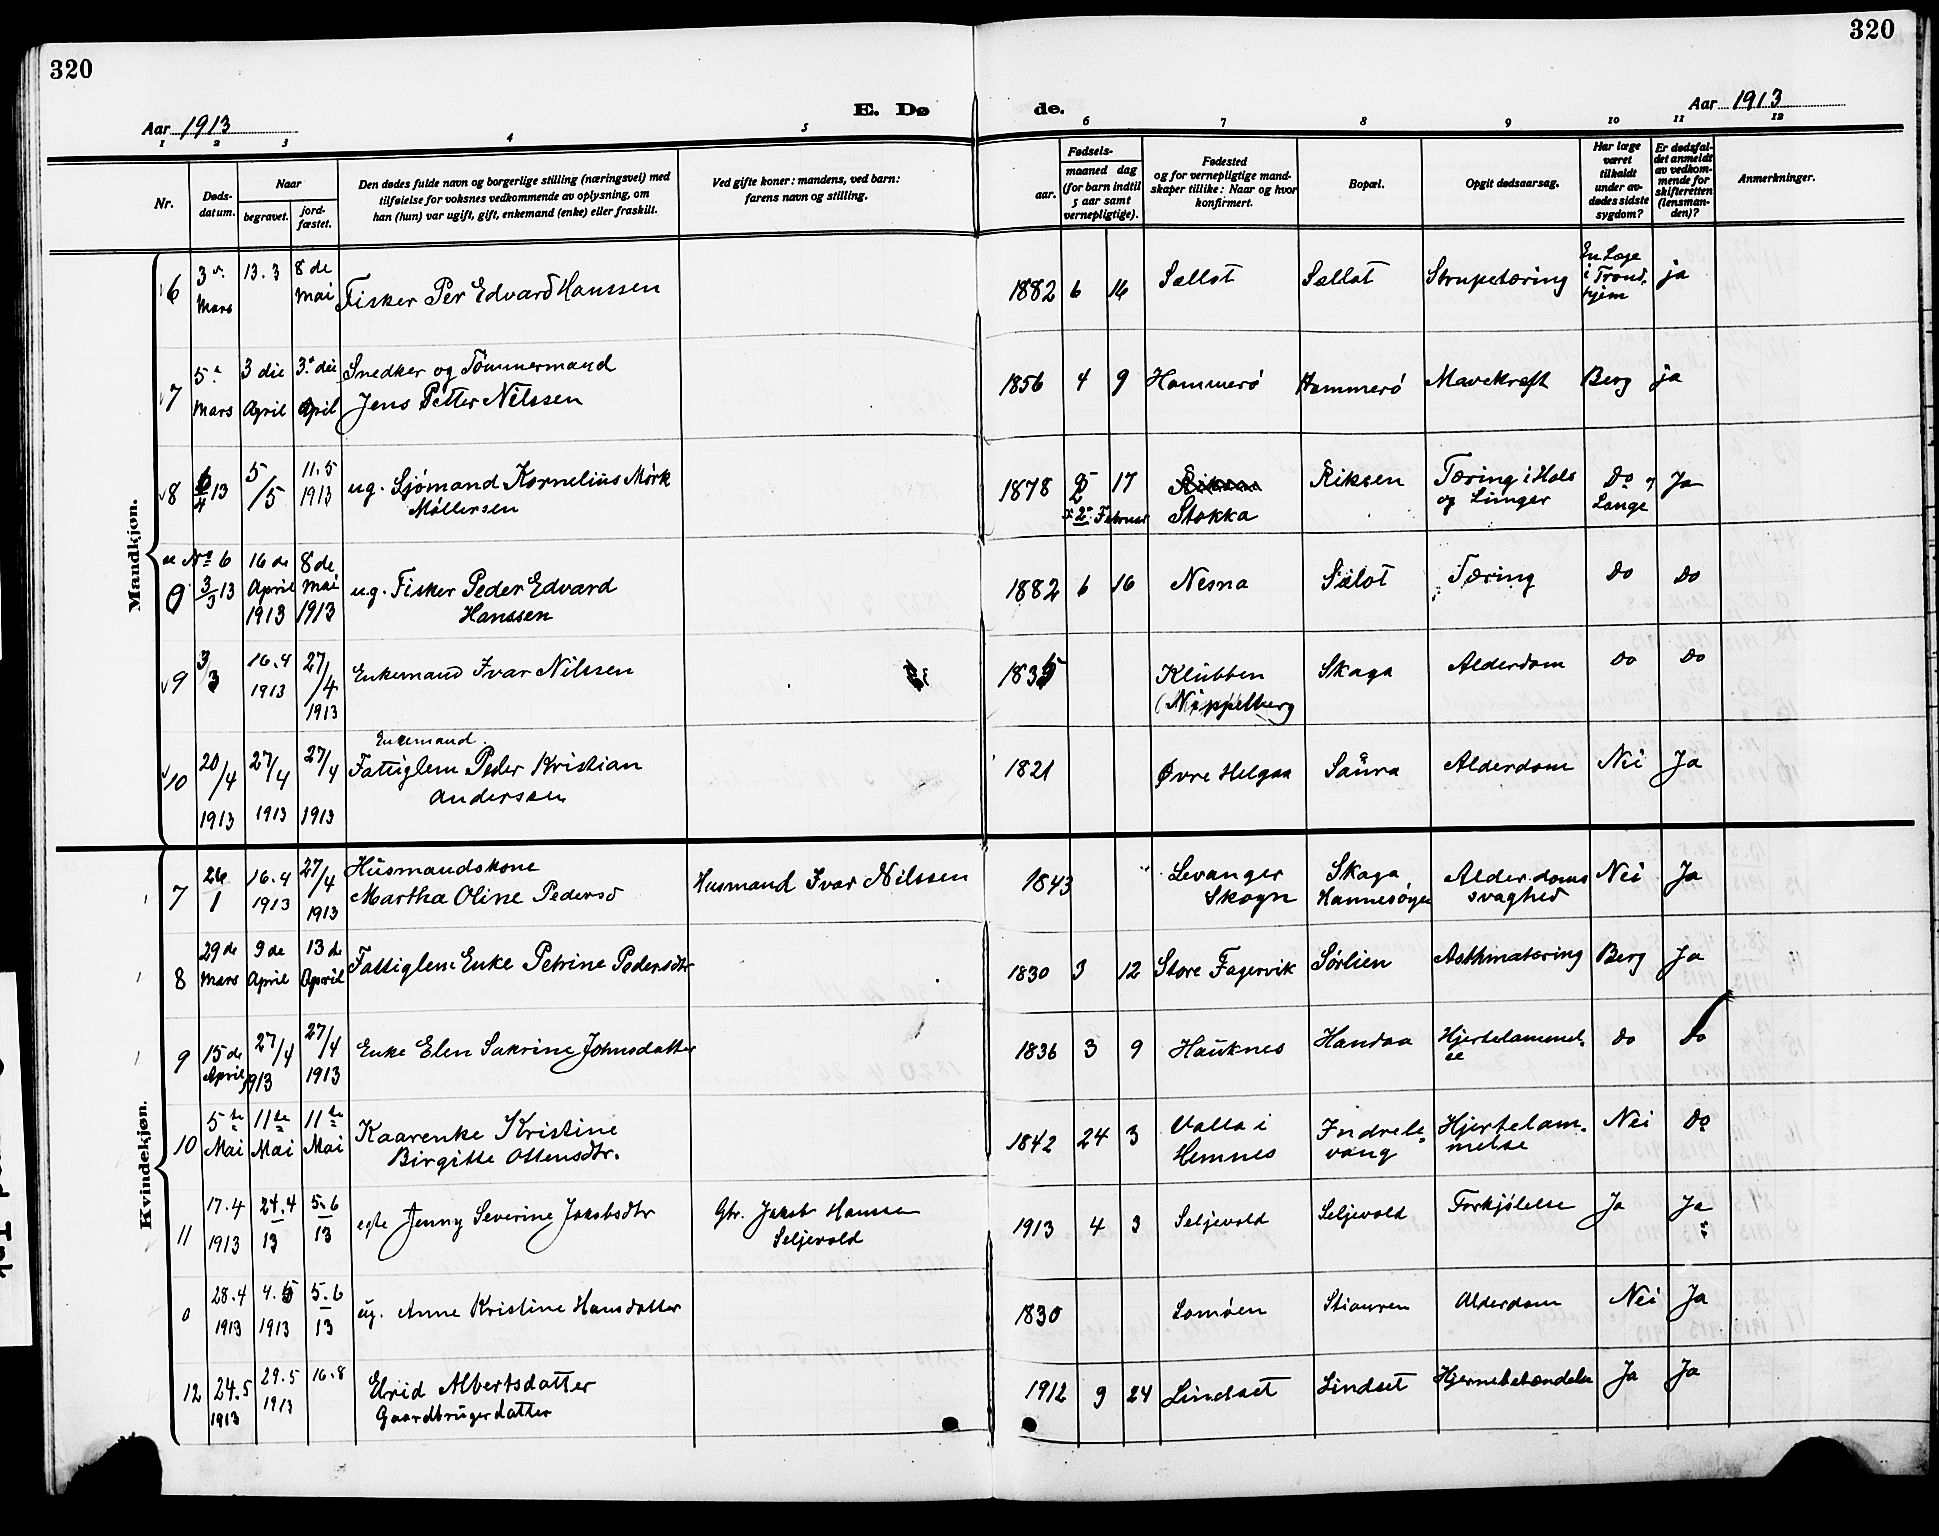 320
320
Aar 1913
E. Dø
de.
Aar 1913
1 2 3 4 5 6 7 8 9 10 11 12
Nr.
Døds-
datum.
Naar
begravet.
jord-
fæstet.
Den dødes fulde navn og borgerlige stilling (næringsvei) med
tilføielse for voksnes vedkommende av oplysning, om
han (hun) var ugift, gift, enkemand (enke) eller fraskilt.
Ved gifte koner: mandens, ved barn:
farens navn og stilling.
Fødsels-
aar.
maaned dag
(for barn indtil
5 aar samt
vernepligtige).
Fødested
og for vernepligtige mand-
skaper tillike: Naar og hvor
konfirmert.
Bopæl.
Opgit dødsaarsag.
Har læge
været
tilkaldt
under av-
dødes sidste
sygdom?
Er dødsfal-
det anmeldt
av vedkom-
mende for
skifteretten
(lensman-
den)?
Anmerkninger.
Mandkjøn.
6 3 Mars 13.3 8 de Mai Fisker Per Edvard Hanssen 1882 6 16 Sallot Sallot Strupetæring En Læge i Trondhjem ja
7 5 Mars 3 die April 3 die April Snedker og Tømmermand
Jens Petter Nilssen 1856 4 9 Hammerö Hammerö Mavekræft Berg ja
8 6/4 13 5/5 11.5 1913 ug. Sjömand Kornelius Mörk
Möllersen 1878 2 17 Stokka Riksen Tæring i Hals
og Lunger Do Lange Ja
x 2 Februar
No 6
0 3/3 13 16 de April 1913 8 de Mai 1913 ug. Fisker Peder Edvard
Hanssen 1882 6 16 Nesna Sælot Tæring Do Do
9 3/3 16.4 1913 27/4 1913 Enkemand Ivar Nilssen 1835 Klubben
(Nippelberg Skaga Alderdom Do Do
10 20/4 1913 27/4 1913 27/4 1913 Enkemand
Fattiglem Peder Kristian
Andersen 1821 Øvre Helgaa Saura Alderdom Nei Ja
Kvindekjøn.
7 26/1 16.4 1913 27/4 1913 Husmandskone
Martha Oline Pedersd Husmand Ivar Nilssen 1843 Levanger
Skogn Skaga
Hannesöyen Alderdoms
svaghed Nei Ja
8 29 de Mars 9 de April 13 de April Fattiglem Enke Petrine Pedersdtr 1830 3 12 Store Fagervik Sørlien Asthmatæring Berg Ja
9 15 de April 27/4 1913 27/4 1913 Enke Elen Sakrine Johnsdatter 1836 3 9 Hauknes Handaa Hjertelammel-
se Do Do
10 5te Mai 11te Mai 11te Mai Kaarenke Kristine
Birgitte Ottensdtr. 1842 24 3 Valla i
Hemnes Indrele-
vang Hjertelam-
melse Nei Do
11 17.4 1913 24.4 13 5.6 13 egte Jenny Severine Jakobsdtr Gbr. Jakob Hansen
Seljevold 1913 4 3 Seljevold Seljevold Forkjölelse Ja Ja
0 28.4 1913 4.5 1913 5.6 13 ug. Anne Kristine Hansdatter 1830 Somöen Stiauren Alderdom Nei Ja
12 24.5 1913 29.5 1913 16.8 Elrid Albertsdatter
Gaardbrugerdatter 1912 9 24 Lindset Lindset Hjernebetændelse Ja Ja